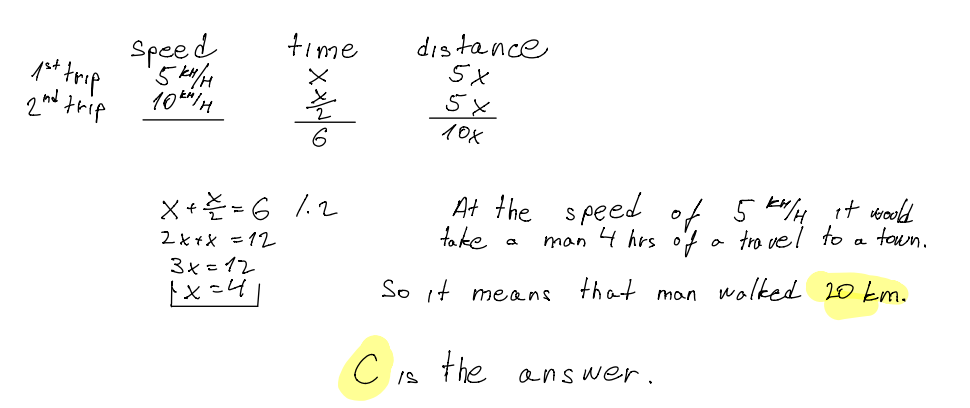 speed time distance
1st trip 5 km/H x 5x
2nd trip 10 km/H x/2 5x
6 10x
x + x/2 = 6 /.2
2x+x = 12
3x = 12
x = 4
At the speed of 5 km/H it would
take a man 4 hrs of a travel to a town.
So it means that man walked 20 km.
C is the answer.